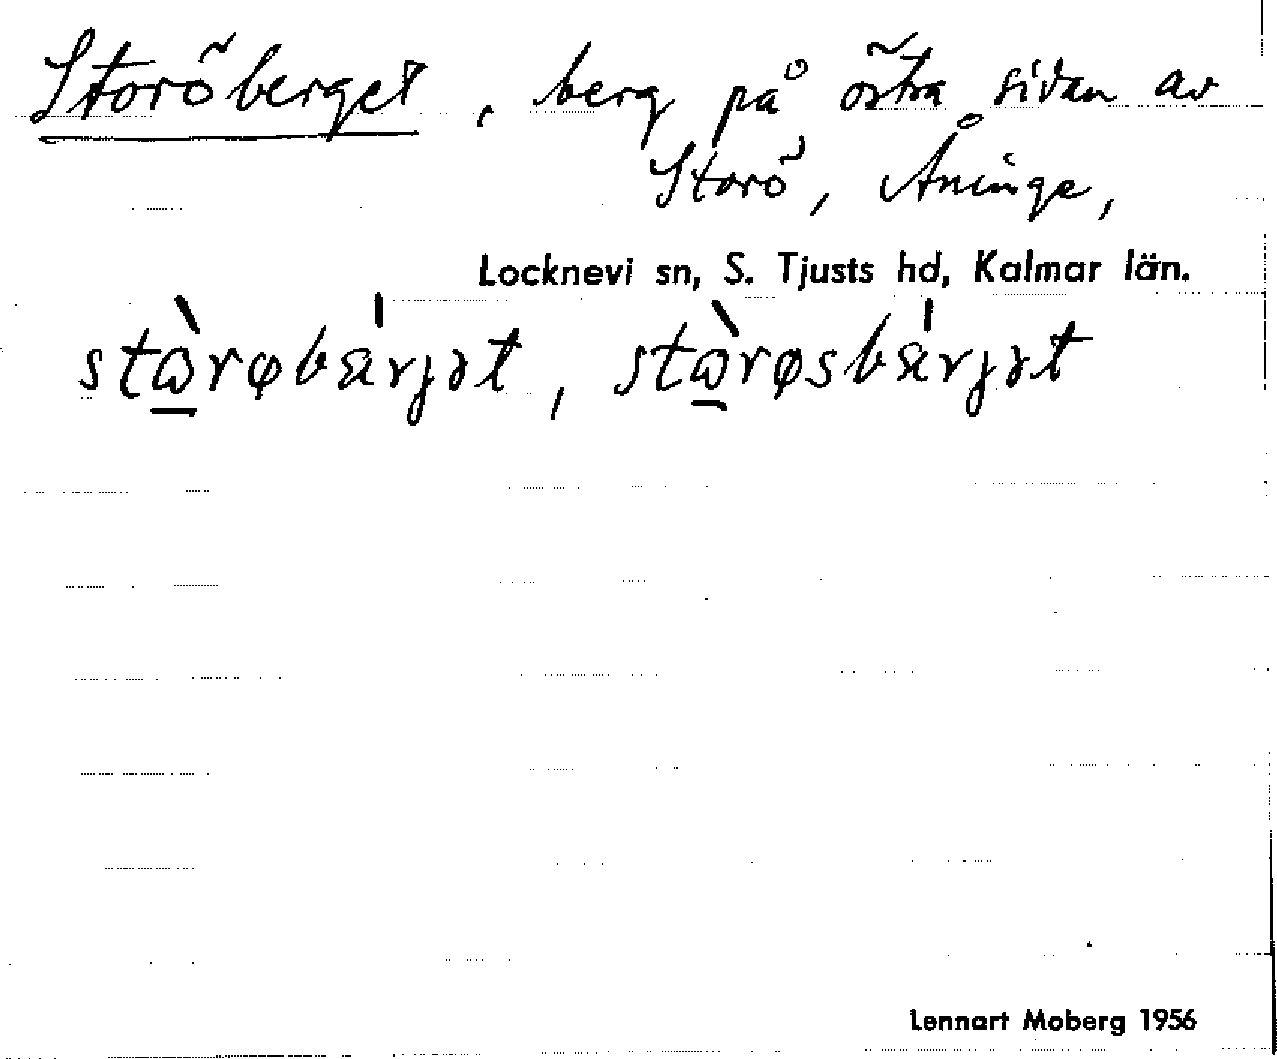 Storöberget, berg på östra sidan av
Storö, Åninge,
Locknevi sn, S. Tjusts hd, Kalmar län.
stɷ̠̀røbæ̍rɟət, stɷ̠̀røsbæ̍rɟət
Lennart Moberg 1956